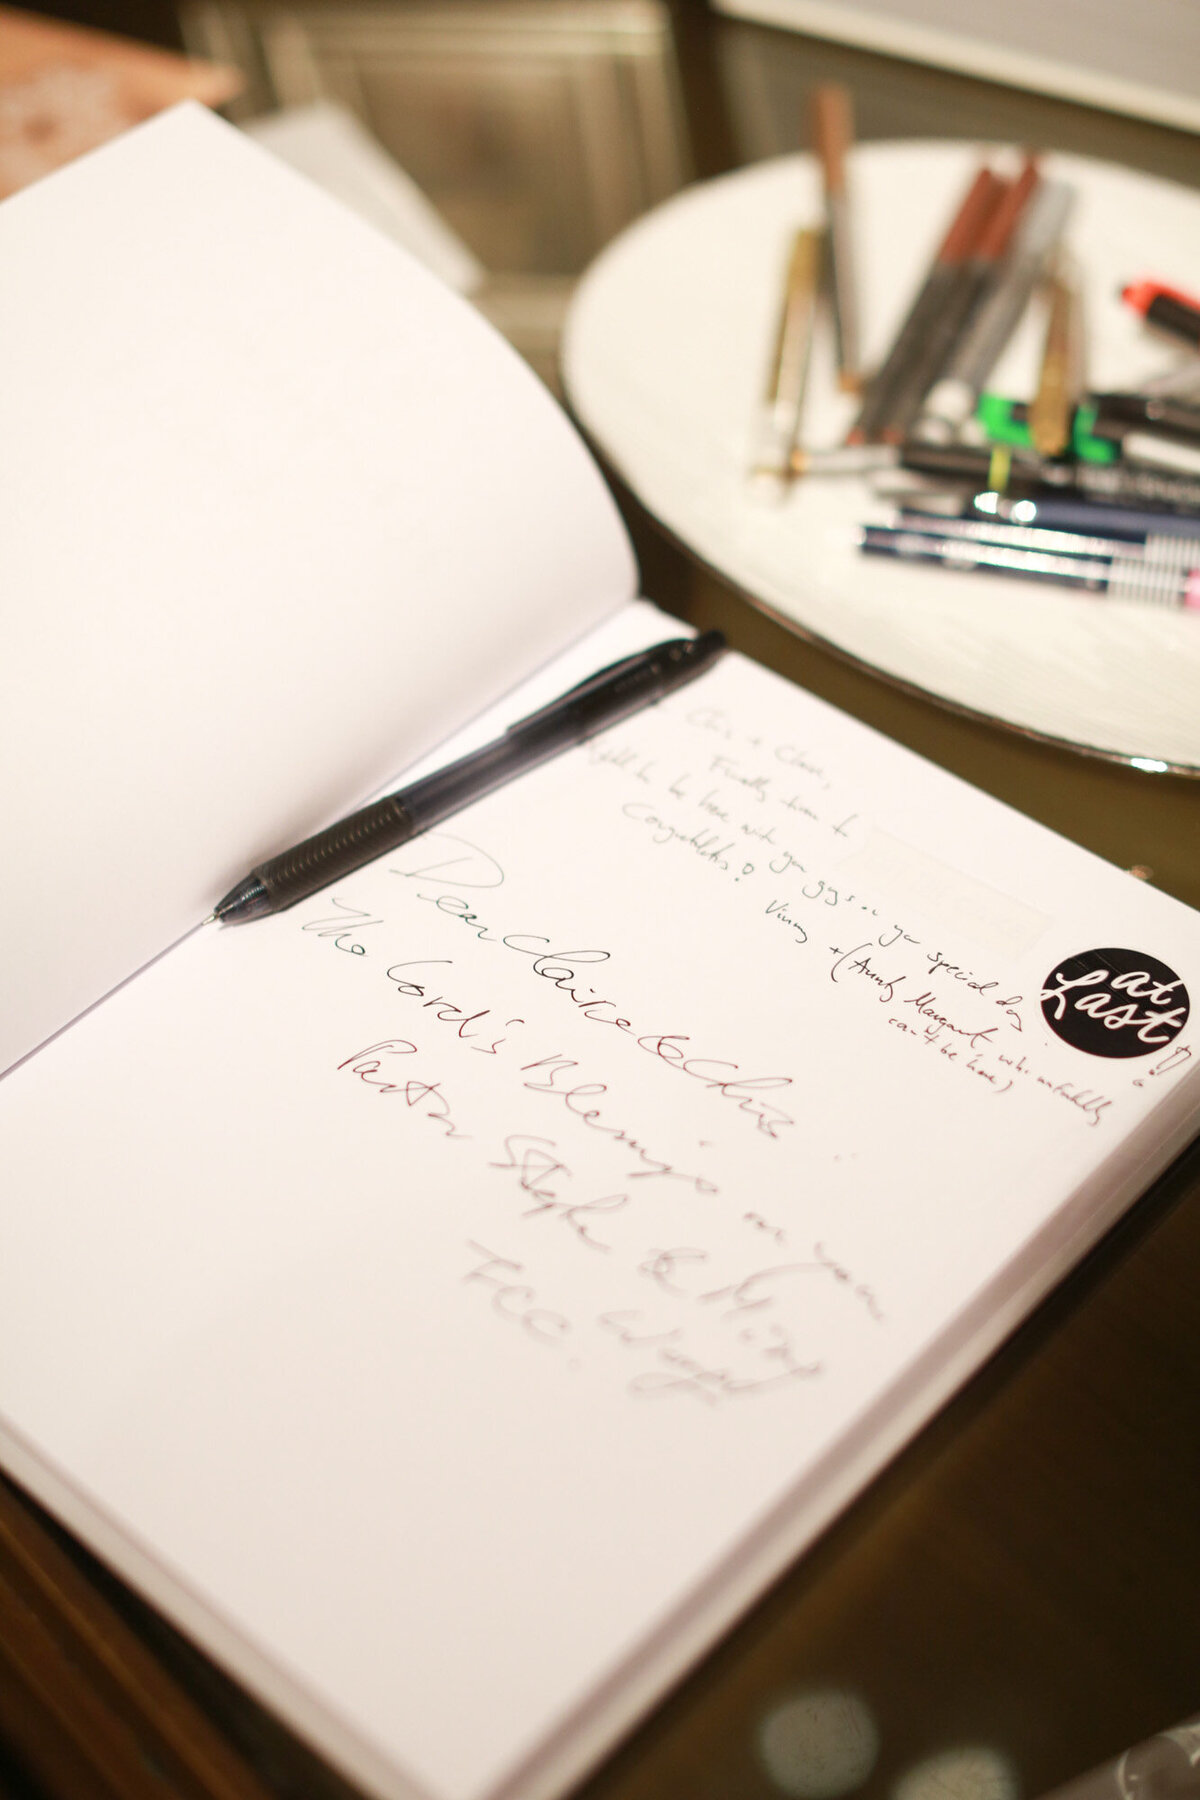 Chris & Claire,
Finally time to
be here with you guys on your special day!
Congratulations!
Vinny + (Aunty Margaret who unfortunately
can't be here)
at
Last
Dear Claire & Chris
The Lord's Blessings on you
Pastor Stephen & Mimp
FCC.